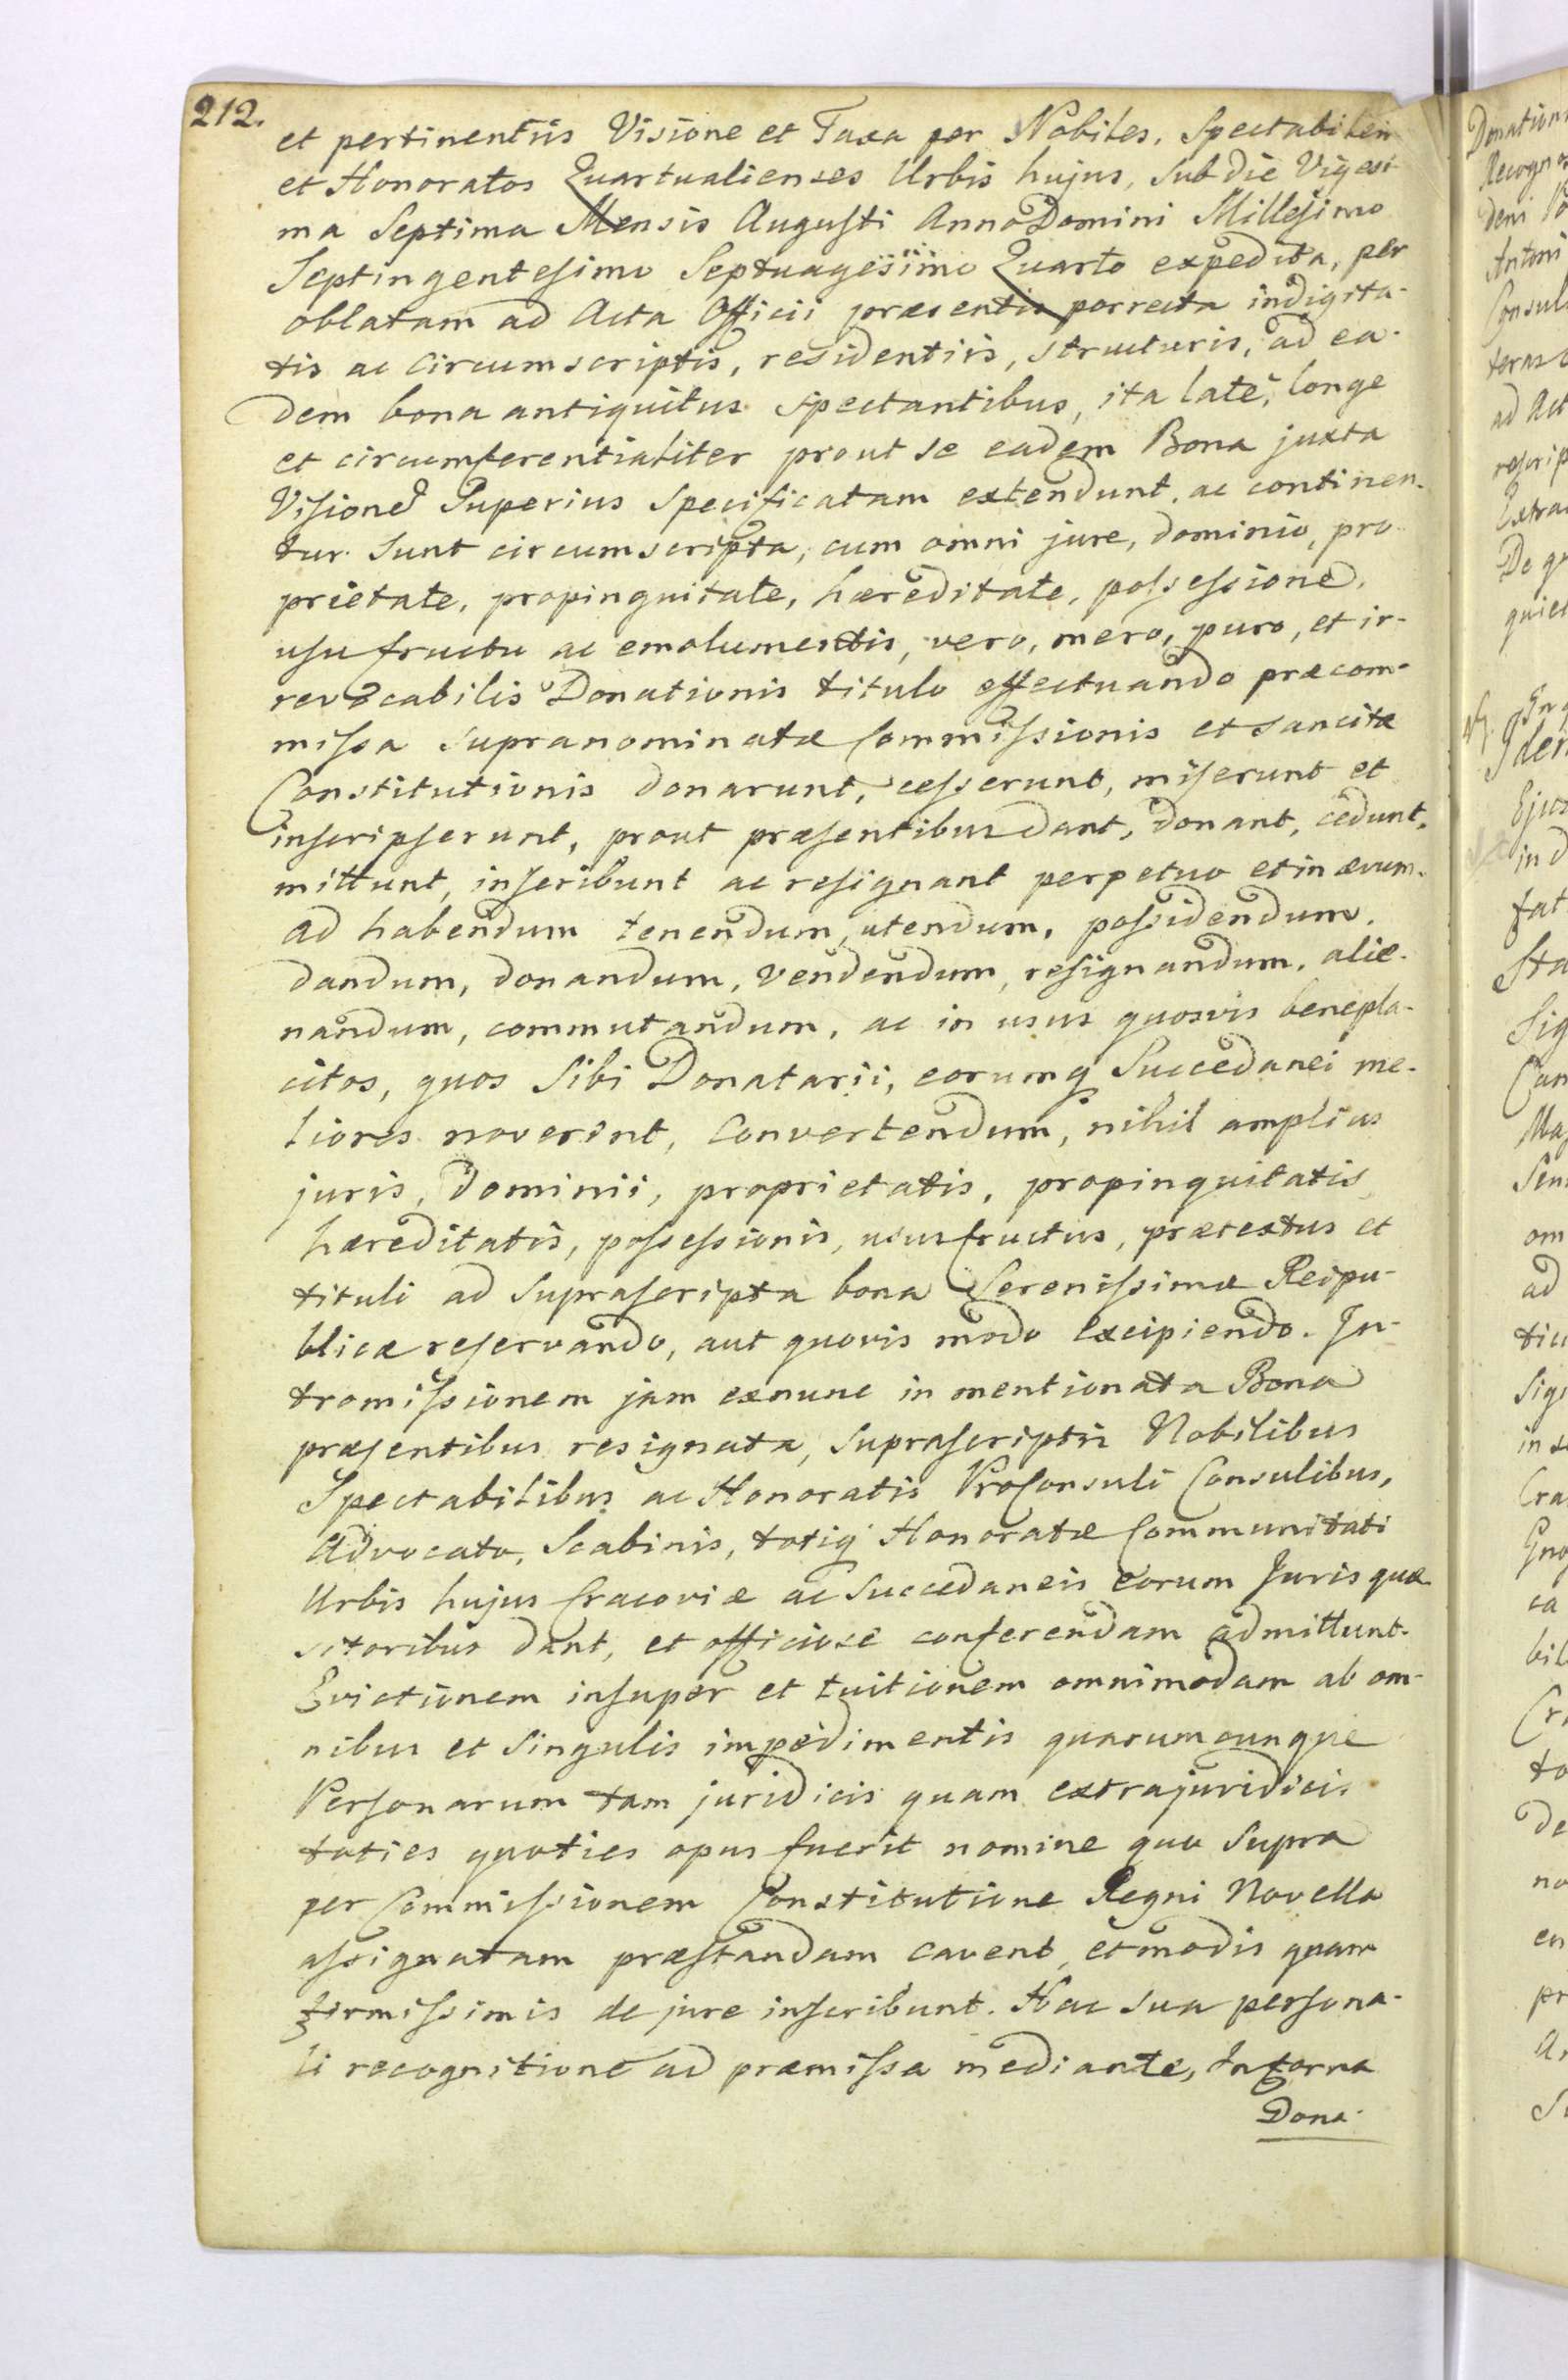 212.
et pertinentiis Visione et Taxa per Nobiles, Spectabiles
et Honoratos Quartualienses Urbis hujus, sub die Vigesi-
ma Septima Mensis Augusti Anno Domini Millesimo
Septingentesimo Septuagesimo Quarto expedita, per
oblatam ad Acta Officii præsentis porrecta indigita-
tis ac circumscriptis, residentiis, structuris, ad ea-
dem bona antiquitus spectantibus, ita late, longe
et circumferentialiter prout se eadem Bona juxta
Visione Superius Specificatam extendunt, ac continen-
tur. sunt circumscripta, cum omni jure, dominio, pro
prietate, propinquitate, hæreditate, possessione,
usufructu ac emolumentis, vero, mero, puro, et ir-
revocabilis Donationis titulo effectuando præcom-
missa supranominatæ Commissionis et sancitæ
Constitutionis donarunt, cesserunt, miserunt et
inscripserunt, prout præsentibus dant, donant, cedunt,
mittunt, inscribunt ac resignant perpetuo et in ævum.
ad habendum tenendum, utendum, possidendum,
dandum, donandum, vendendum, resignandum, alie-
nandum, commutandum, ac in usus quosvis benepla-
citos, quos Sibi Donatarii, eorumq Succedanei me-
liores noverint, Convertendum, nihil amplius
juris, Dominii, proprietatis, propinquitatis,
hæreditatis, possessionis, ususfructus, prætextus et
tituli ad suprascripta bona Serenissimæ Reipu-
blicæ reservando, aut quovis modo Excipiendo. In-
tromissionem jam exnunc in mentionata Bona
præsentibus resignata, suprascriptis Nobilibus
Spectabilibus ac Honoratis ProConsuli Consulibus,
Advocato, Scabinis, totiq Honoratæ Communitati
Urbis hujus Cracoviæ ac Succedaneis eorum Juris quæ
sitoribus dant, et officiose conferendam admittunt.
Evictionem insuper et tuitionem omnimodam ab om-
nibus et Singulis impedimentis quarumcunque
Personarum tam juridicis quam extrajuridicis
toties quoties opus fuerit nomine quo supra
per Commissionem Constitutione Regni Novella
assignatam præstandam cavent, et modis quam
firmissimis de jure inscribunt. Hac sua persona-
li recognitione ad præmissa mediante, Interna
Dona-